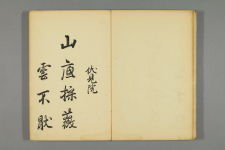 伏見院
山廋採薇
雲不猒